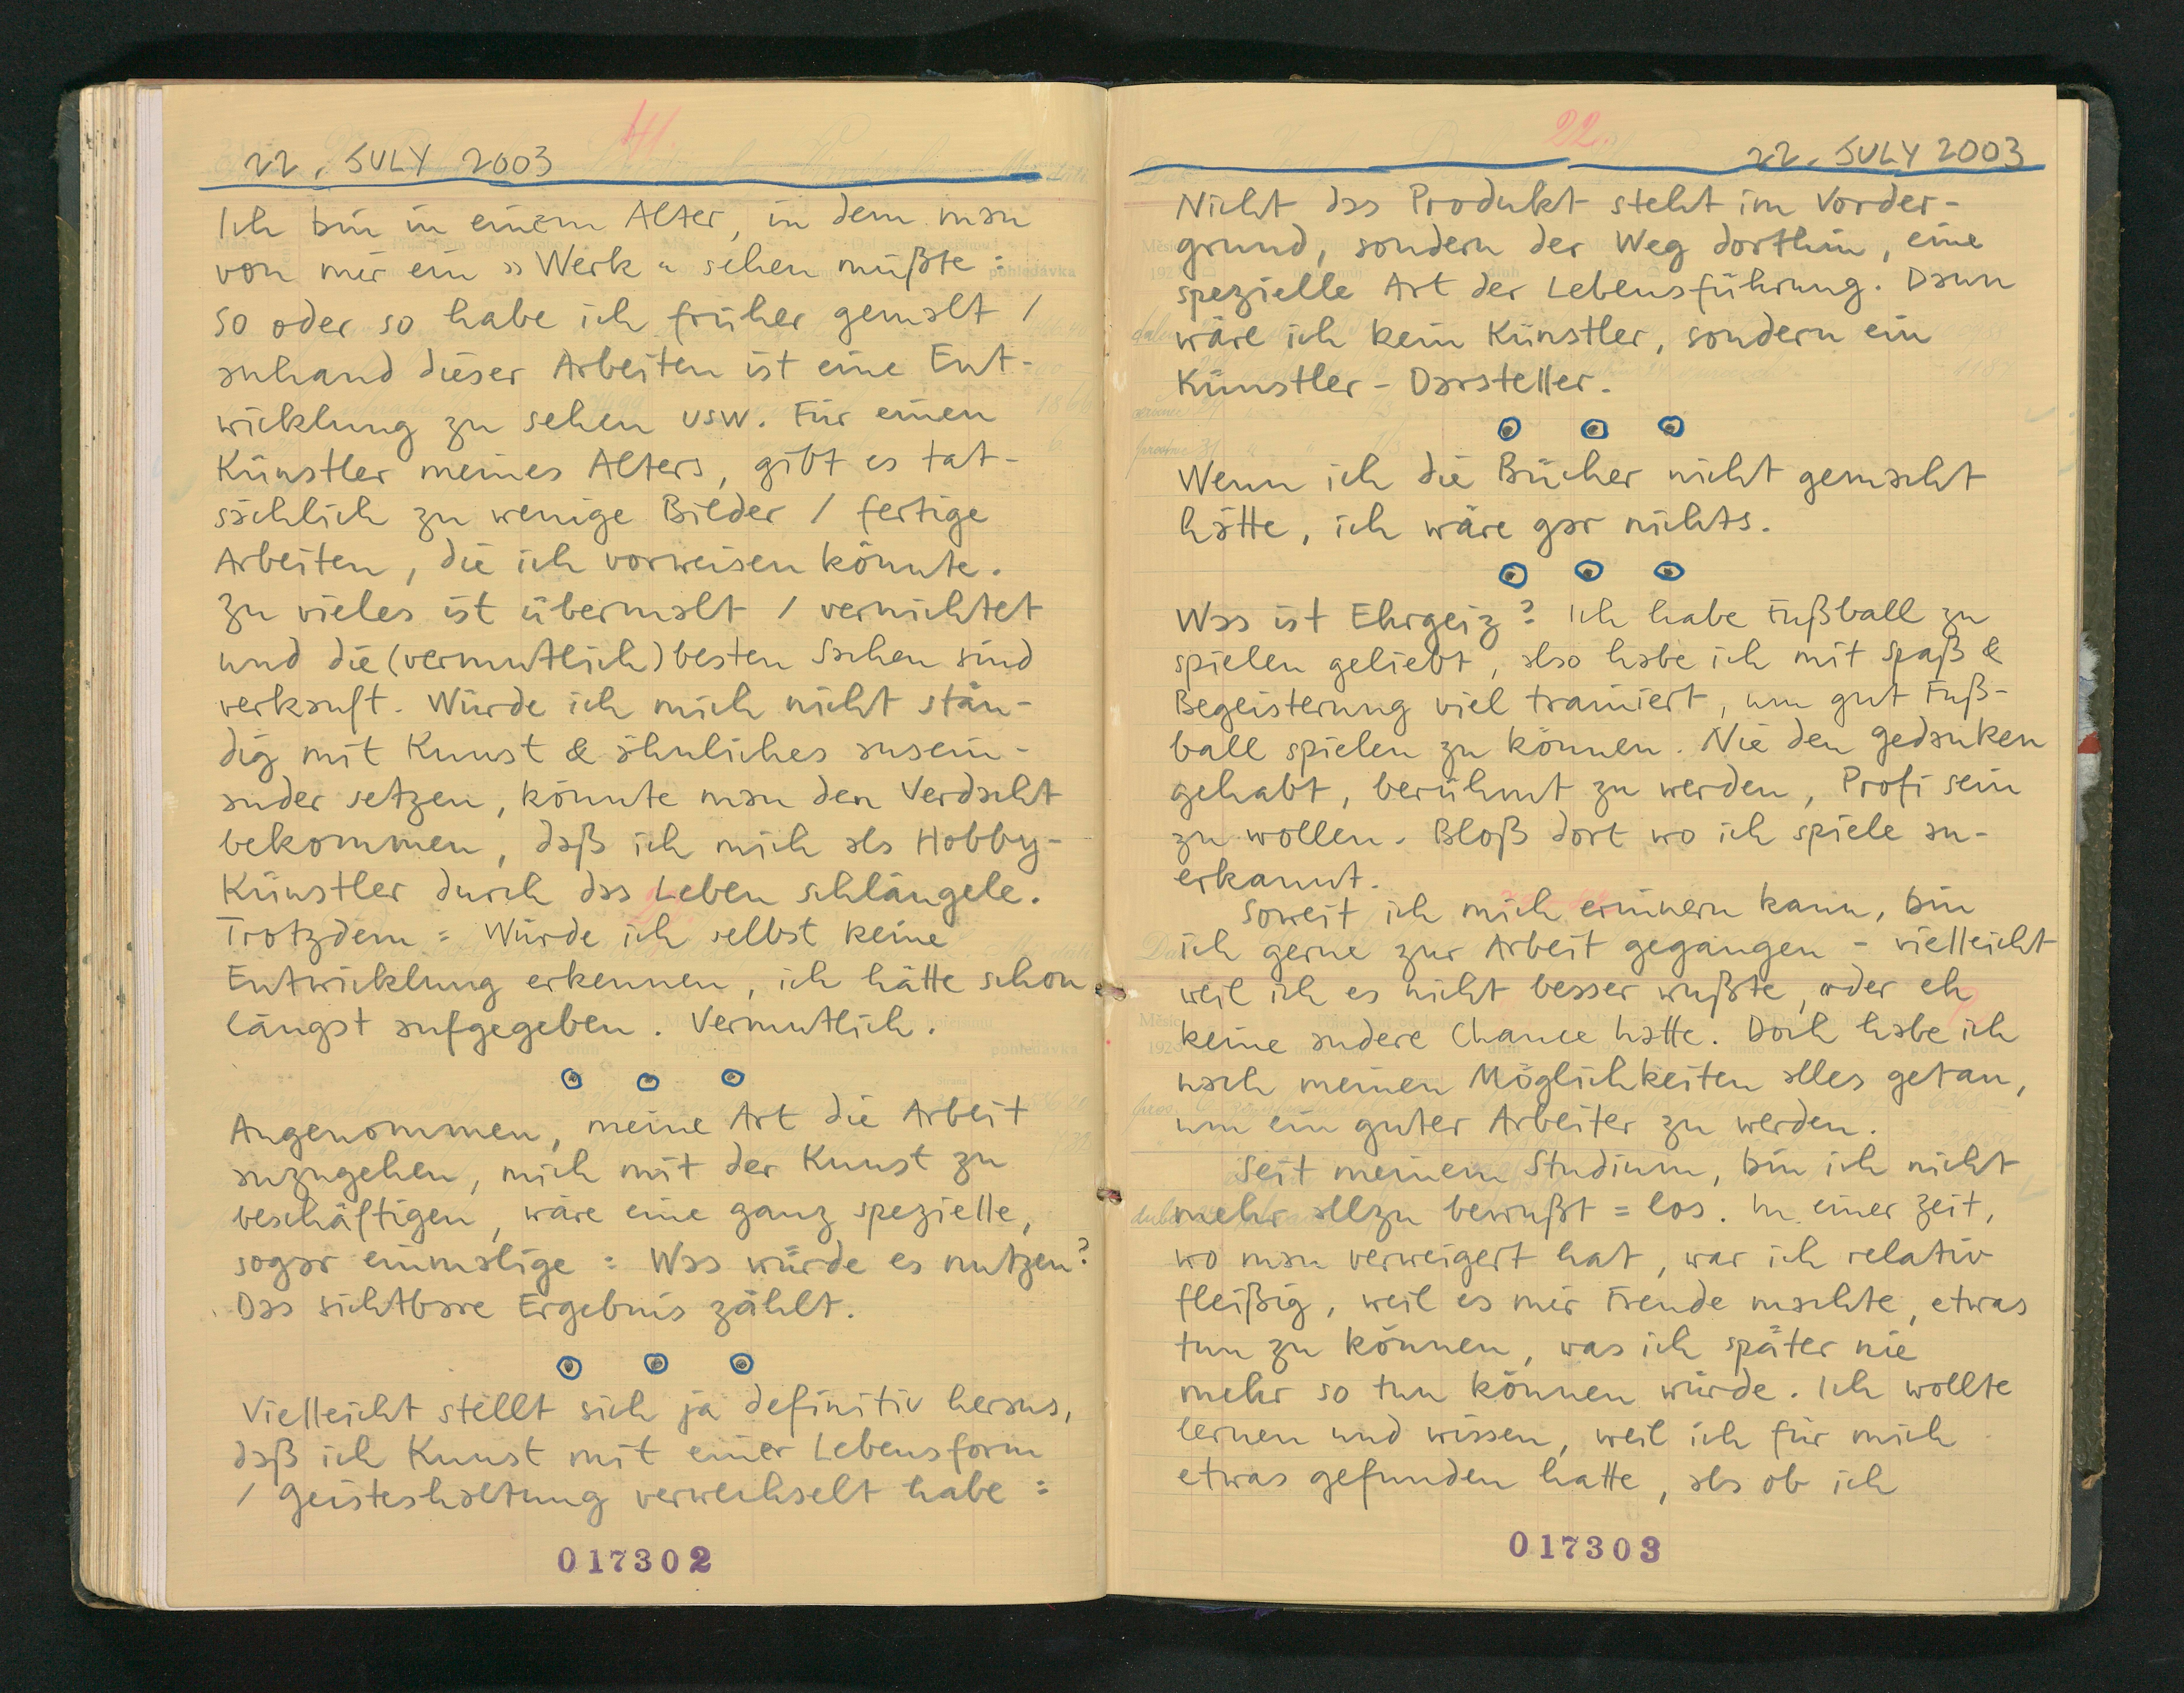 41.
22. JULY 2003
Ich bin in einem Alter, in dem man
von mir ein »Werk« sehen müßte:
So oder so habe ich früher gemalt /
anhand dieser Arbeiten ist eine Ent-
wicklung zu sehen usw. Für einen
Künstler meines Alters, gibt es tat-
sächlich zu wenige Bilder / fertige
Arbeiten, die ich vorweisen könnte.
Zu vieles ist übermalt / vernichtet
und die (vermutlich) besten Sachen sind
verkauft. Würde ich mich nicht stän-
dig mit Kunst & ähnliches ausein-
ander setzen, könnte man den Verdacht
bekommen, daß ich mich als Hobby-
Künstler durch das Leben schlängele.
Trotzdem: Würde ich selbst keine
Entwicklung erkennen, ich hätte schon
längst aufgegeben. Vermutlich.
Angenommen, meine Art die Arbeit
anzugehen, mich mit der Kunst zu
beschäftigen, wäre eine ganz spezielle,
sogar einmalige: Was würde es nutzen?
Das sichtbare Ergebnis zählt.
Vielleicht stellt sich ja definitiv heraus,
daß ich Kunst mit einer Lebensform
/ Geisteshaltung verwechselt habe:
017302
22.
22. JULY 2003
Nicht das Produkt steht im Vorder-
grund, sondern der Weg dorthin, eine
spezielle Art der Lebensführung. Dann
wäre ich kein Künstler, sondern ein
Künstler-Darsteller.
Wenn ich die Bücher nicht gemacht
hätte, ich wäre gar nichts.
Was ist Ehrgeiz? Ich habe Fußball zu
spielen geliebt, also habe ich mit Spaß &
Begeisterung viel trainiert, um gut Fuß-
ball spielen zu können. Nie den Gedanken
gehabt, berühmt zu werden, Profi sein
zu wollen. Bloß dort wo ich spiele an-
erkannt.
Soweit ich mich erinnern kann, bin
ich gerne zur Arbeit gegangen - vielleicht
weil ich es nicht besser wußte, oder eh
keine andere Chance hatte. Doch habe ich
nach meinen Möglichkeiten alles getan,
um ein guter Arbeiter zu werden.
Seit meinem Studium, bin ich nicht
mehr allzu bewußt=los. In einer Zeit,
wo man verweigert hat, war ich relativ
fleißig, weil es mir Freude machte, etwas
tun zu können, was ich später nie
mehr so tun können würde. Ich wollte
lernen und wissen, weil ich für mich
etwas gefunden hatte, als ob ich
017303